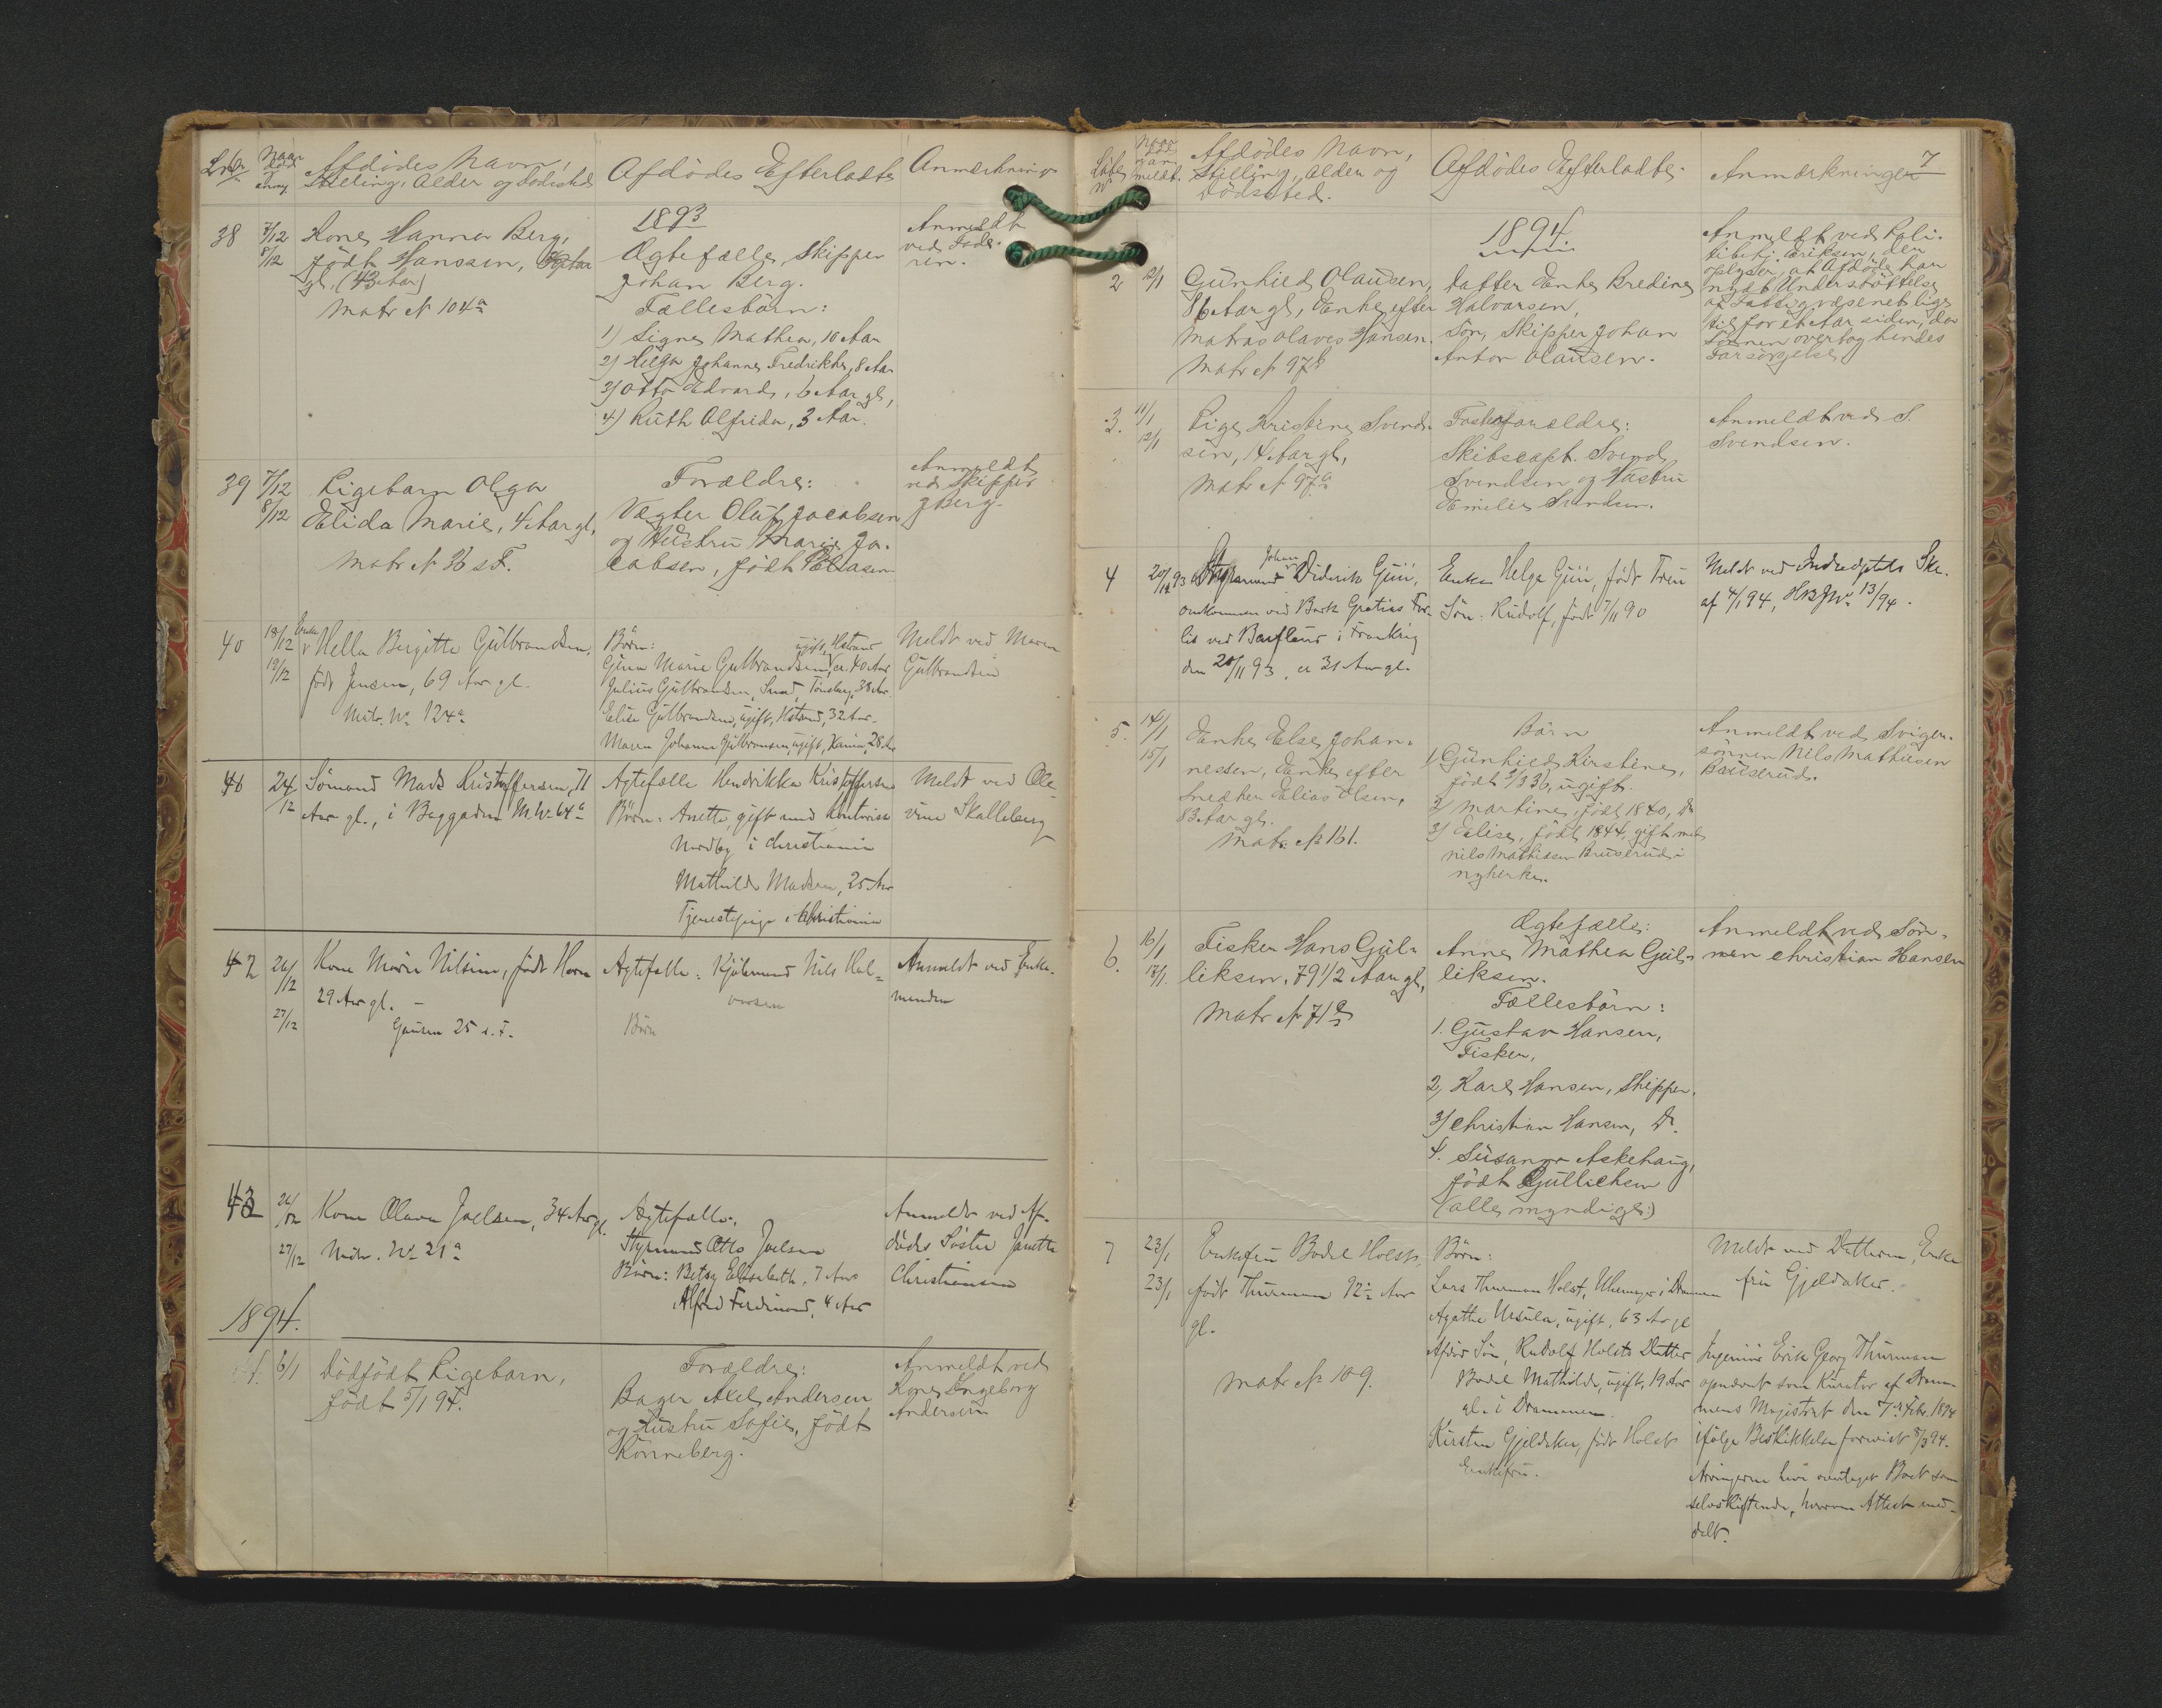 Lnr
Naar
död
Afdödes Navn,
Stilling, Alder og Dödssted
Afdödes Efterladte
Anmærkninger
1893
38
7/12
8/12
Kone Hanna Berg,
født Hanssen,
gl. (43 Aar)
Matr № 104a
Ægtefælle, Skipper
Johan Berg.
Fællesbörn:
1) Signe Mathea, 10 Aar
2) Helga Johanne Fredrikke, 8 Aar
3) Otto Edvard, 6 Aar gl,
4) Ruth Alfrida, 3 Aar.
Anmeldt
ved Fade-
ren.
39
7/12
8/12
Pigebarn Olga
Elida Marie, 4 Aar gl,
Matr № 36 s F.
Forældre:
Vægter Oluf Jacobsen
og Hustru Marie Ja-
cobsen, født
Anmeldt
ved Skipper
J Berg.
40
18/12
19/12
Enke
Hella Birgitte Gulbrandsen,
född Jensen, 69 Aar gl.
Matr. No 124a
Börn:
ugift, Hstrand
Gina Marie Gulbrandsen, ca. 40 Aar
Julius Gulbrandsen, Smed, Tönsberg, 38 Aar.
Elise Gulbrandsen, ugift, Hstrand, 32 Aar.
Maren Johanne Gulbransen, ugift, 28 Aar
Meldt ved Maren
Gulbrandsen
41
24/12
Sömand Mads Kristoffersen, 71
Aar gl., i Baggaden M. No 64a
Ægtefælle Hendrikka Kristoffersen
Börn: Anette, gift med Kontorist
Nordby i Christiania
Mathilde Madsen, 25 Aar
Tjenestepige i Christiania
Meldt ved Ole-
vine Skalleberg
42
26/12
27/12
Kone Marie Nilsen, född Horn
29 Aar gl. -
Gausen 25 s. F.
Ægtefælle: Nils Hal-
vorsen
Börn
Anmeldt ved Enke-
manden
43
26/12
27/12
Kone Olava Joelsen, 34 Aar gl.
Matr. No 21a
Ægtefælle,
Styrmand Otto Joelsen
Börn: Betsy Elisabeth, 7 Aar
Alfred Ferdinand, 4 Aar
Anmeldt ved Af-
dödes Söster Janette
Christiansen
1894.
1.
6/1
Dödfödt Pigebarn,
född 5/1 94.
Forældre:
Bager Axel Andersen
og Hustru Sofie, född
Könneberg.
Anmeldt ved
Kone Ingeborg
Andersen
7
Löbe
No
Afdödes Navn,
Stilling, Alder og
Dödssted.
Afdödes Efterladte.
Anmærkninger
1894.
2
12/1
Gunhild Olausen,
86 Aar gl, Enke efter
Matros Olaves Hansen.
Matr № 97b
Datter Enke Bredine
Halvorsen,
Sön, Skipper Johan
Anton Olausen.
Anmeldt ved Poli-
tibetj. Eriksen, der
oplyser, at Afdöde har
nydt Understöttelse
af Fattigvæsenet lige
til for et Aar siden, da
Sönnen overtog hendes
Forsörgelse
3.
11/1
12/1
Pige Kristine Svend-
sen, 14 Aar gl,
Matr № 97a
Forældre:
Skibscapt. Svend
Svendsen og Hustru
Emilie Svendsen.
Anmeldt ved S.
Svendsen.
4
20/12 93
Styrmand Johan Diderik Guii,
omkommen ved Bark Gratias For-
lis ved Barfleur i Frankrig
den 20/11 93, ca 31 Aar gl.
Enke Helga Guii, född Treu
Sön: Rudolf, född 7/11 90
Meldt ved Indredeptets Skr.
af 4/1 94, 13/94.
5.
14/1
15/1
Enke Else Johan-
nessen, Enke efter
Snedker Elias Olsen,
83 Aar gl.
Matr. № 161.
Börn
1) Gunhild Kirstine,
född 2/8 36, ugift.
2) Martine, född 1840, Do
3) Elise, född 1844, gift med
Nils Mathisen Bruserud i
Nykirke.
Anmeldt ved Sviger-
sönnen Nils Mathisen
Bruserud.
6.
16/1
17/1.
Fisker Hans Gul-
liksen, 79 1/2 Aar gl,
Matr № 71a
Ægtefælle:
Anne Mathea Gul-
liksen.
Fællesbörn:
1. Gustav Hansen,
Fisker,
2) Karl Hansen, Skipper,
3) Christian Hansen, Do.
4. Susanne Askehaug,
född Gullichsen
(alle myndige)
Anmeldt ved Sön-
nen Christian Hansen
7
23/1
23/1
Enkefru Bodil Holst,
född Thurman 92½ Aar
gl.
Matr № 109.
Börn:
Lars Thurman Holst, Uhrmager i Drammen
Agathe Ursula, ugift, 63 Aar gl
Afdöd Sön, Rudolf Holsts Datter
Bodil Mathilde, ugift, 19 Aar
gl. i Drammen.
Kirsten Gjeldaker, född Holst
Enkefru.
Meldt ved Datteren, Enke
fru Gjeldaker.
Ingeniör Erik Georg Thurman
opnævnt som Kurator af Dram-
mens Magistrat den 7de Febr. 1894
ifölge Beskikkelse forevist 8/3 94.
Arvingerne have overtaget Boet som
selvskiftende, hvorom Attest med-
delt.